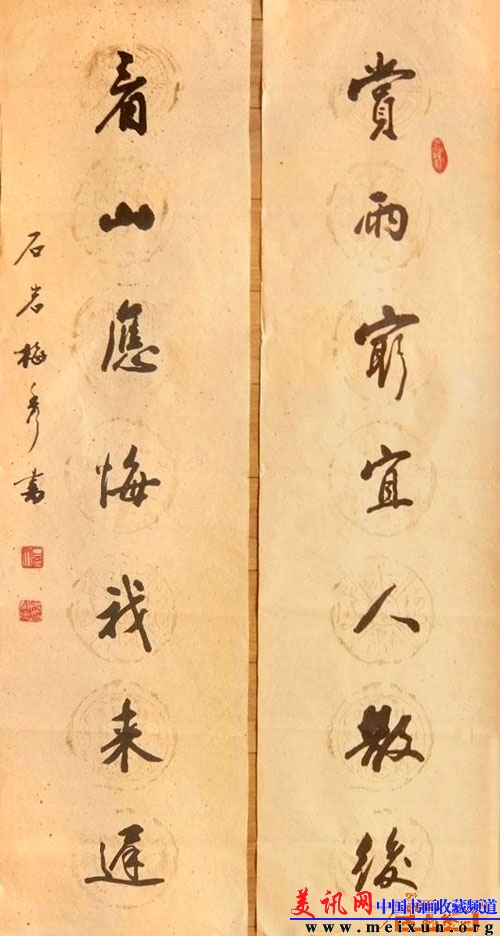 賞雨最宜人散後
看山應悔我来遲
石岩梅秀書
美讯网 中国书画收藏频道
www.meixun.org